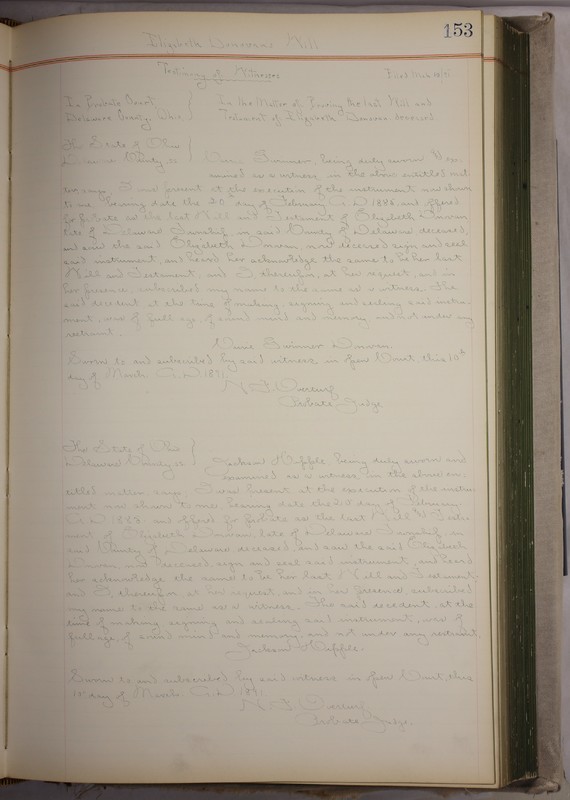 153
Elizabeth Donovan's Will
Testimony of Witnesses Filed Mch 10/91
In Probate Court, In the Matter of Proving the last Will and
Delaware County, Ohio Testament of Elizabeth Donovan deceased
The State of Ohio
Delaware County, ss being duly sworn
as a witness in the above entitled mat
ter says, I was present at the execution of the instrument now shown
to me bearing date the 20th day of February A.D. 1888, and offered
for probate as the last Will and Testament of Elizabeth Donovan
late of Delaware Township, in said County of Delaware deceased,
and saw the said Elizabeth Donovan, now deceased sign and seal
said instrument, and heard her acknowledge the same to be her last
Will and Testament, and I, thereupon, at her request, and in
her presence, subscribed my name to the same as a witness. The
said decedent at the time of making, signing and sealing said instru-
ment, was of full age, of sound mind and memory, and not under any
restraint.
Donovan.
Sworn to and subscribed by said witness in open Court this 10th
day of March A.D. 1891
Probate Judge
The State of Ohio
Delaware County, ss Jackson being duly sworn and
examined as a witness in the above en-
titled matter says, I was present at the execution of the instru-
ment now shown to me, bearing date the 20 day of February
A.D. 1888. and offered for probate as the last Will & Testa-
ment of Elizabeth Donovan, late of Delaware Township, in
said County of Delaware deceased, and saw the said Elizabeth
Donovan, now deceased, sign and seal said instrument, and heard
her acknowledge the same to be her last Will and Testament,
and I, thereupon, at her request, and in her presence, subscribed
my name to the same as a witness. The said decedent, at the
time of making, signing and sealing said instrument, was of
full age, of sound mind and memory, and not under any restraint.
Jackson
Sworn to and subscribed by said witness in open Court this
10 day of March A.D. 1891
Probate Judge.